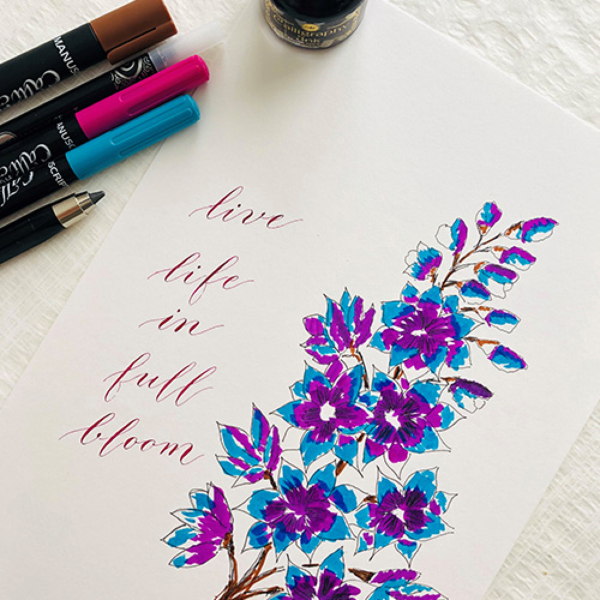 Calligraphy
Ink
MANUS
Calli
MANUSC
MANUSCRIP
Calli
live
life
in
full
bloom